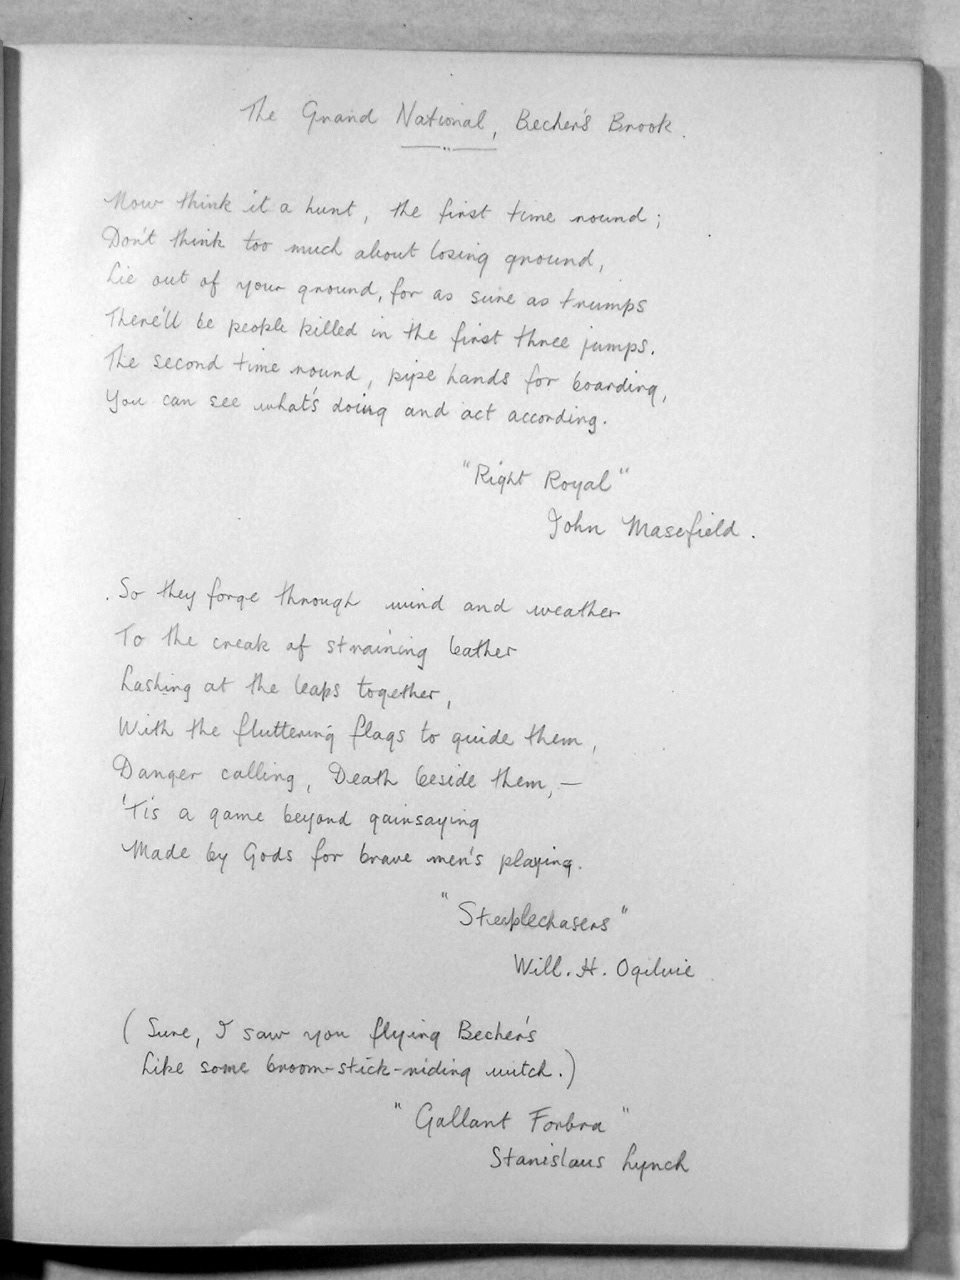 The Grand National, Becher's Brook.
Now think it a hunt, the first time round;
Don't think too much about losing ground,
Lie out of your ground, for as sure as trumps
There'll be people killed in the first three jumps.
The second time round, pipe hands for boarding,
You can see what's doing and act according.
"Right Royal"
John Masefield.
So they forge through wind and weather
To the creak of straining leather
Lashing at the leaps together,
With the fluttering flags to guide them,
Danger calling, Death beside them,—
'Tis a game beyond gainsaying
Made by Gods for brave men's playing.
"Steeplechasers"
Will. H. Ogilvie
(Sure, I saw you flying Becher's
Like some broom-stick-riding witch.)
"Gallant Forbra"
Stanislaus Lynch